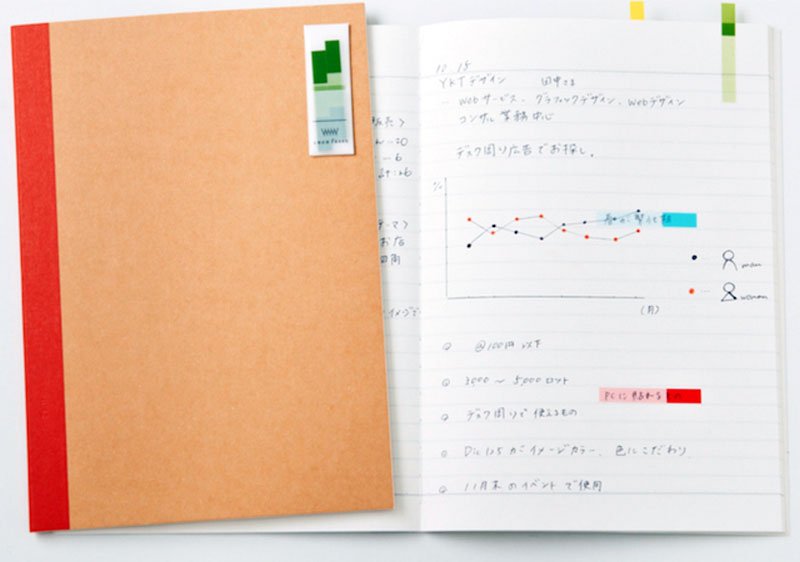 10.15
YKTデザイン 田中さま
Webサービス、グラフィックデザイン、Webデザイン
コンサル業務中心
デスク周り広告でお探し。
%
man
woman
(月)
@100円以下
3,000〜5,000ロット
PCに貼れる
デスク周りで使えるもの
Dic125がイメージカラー、色にこだわり
11月末のイベントで使用
販売>
お店
イメージで